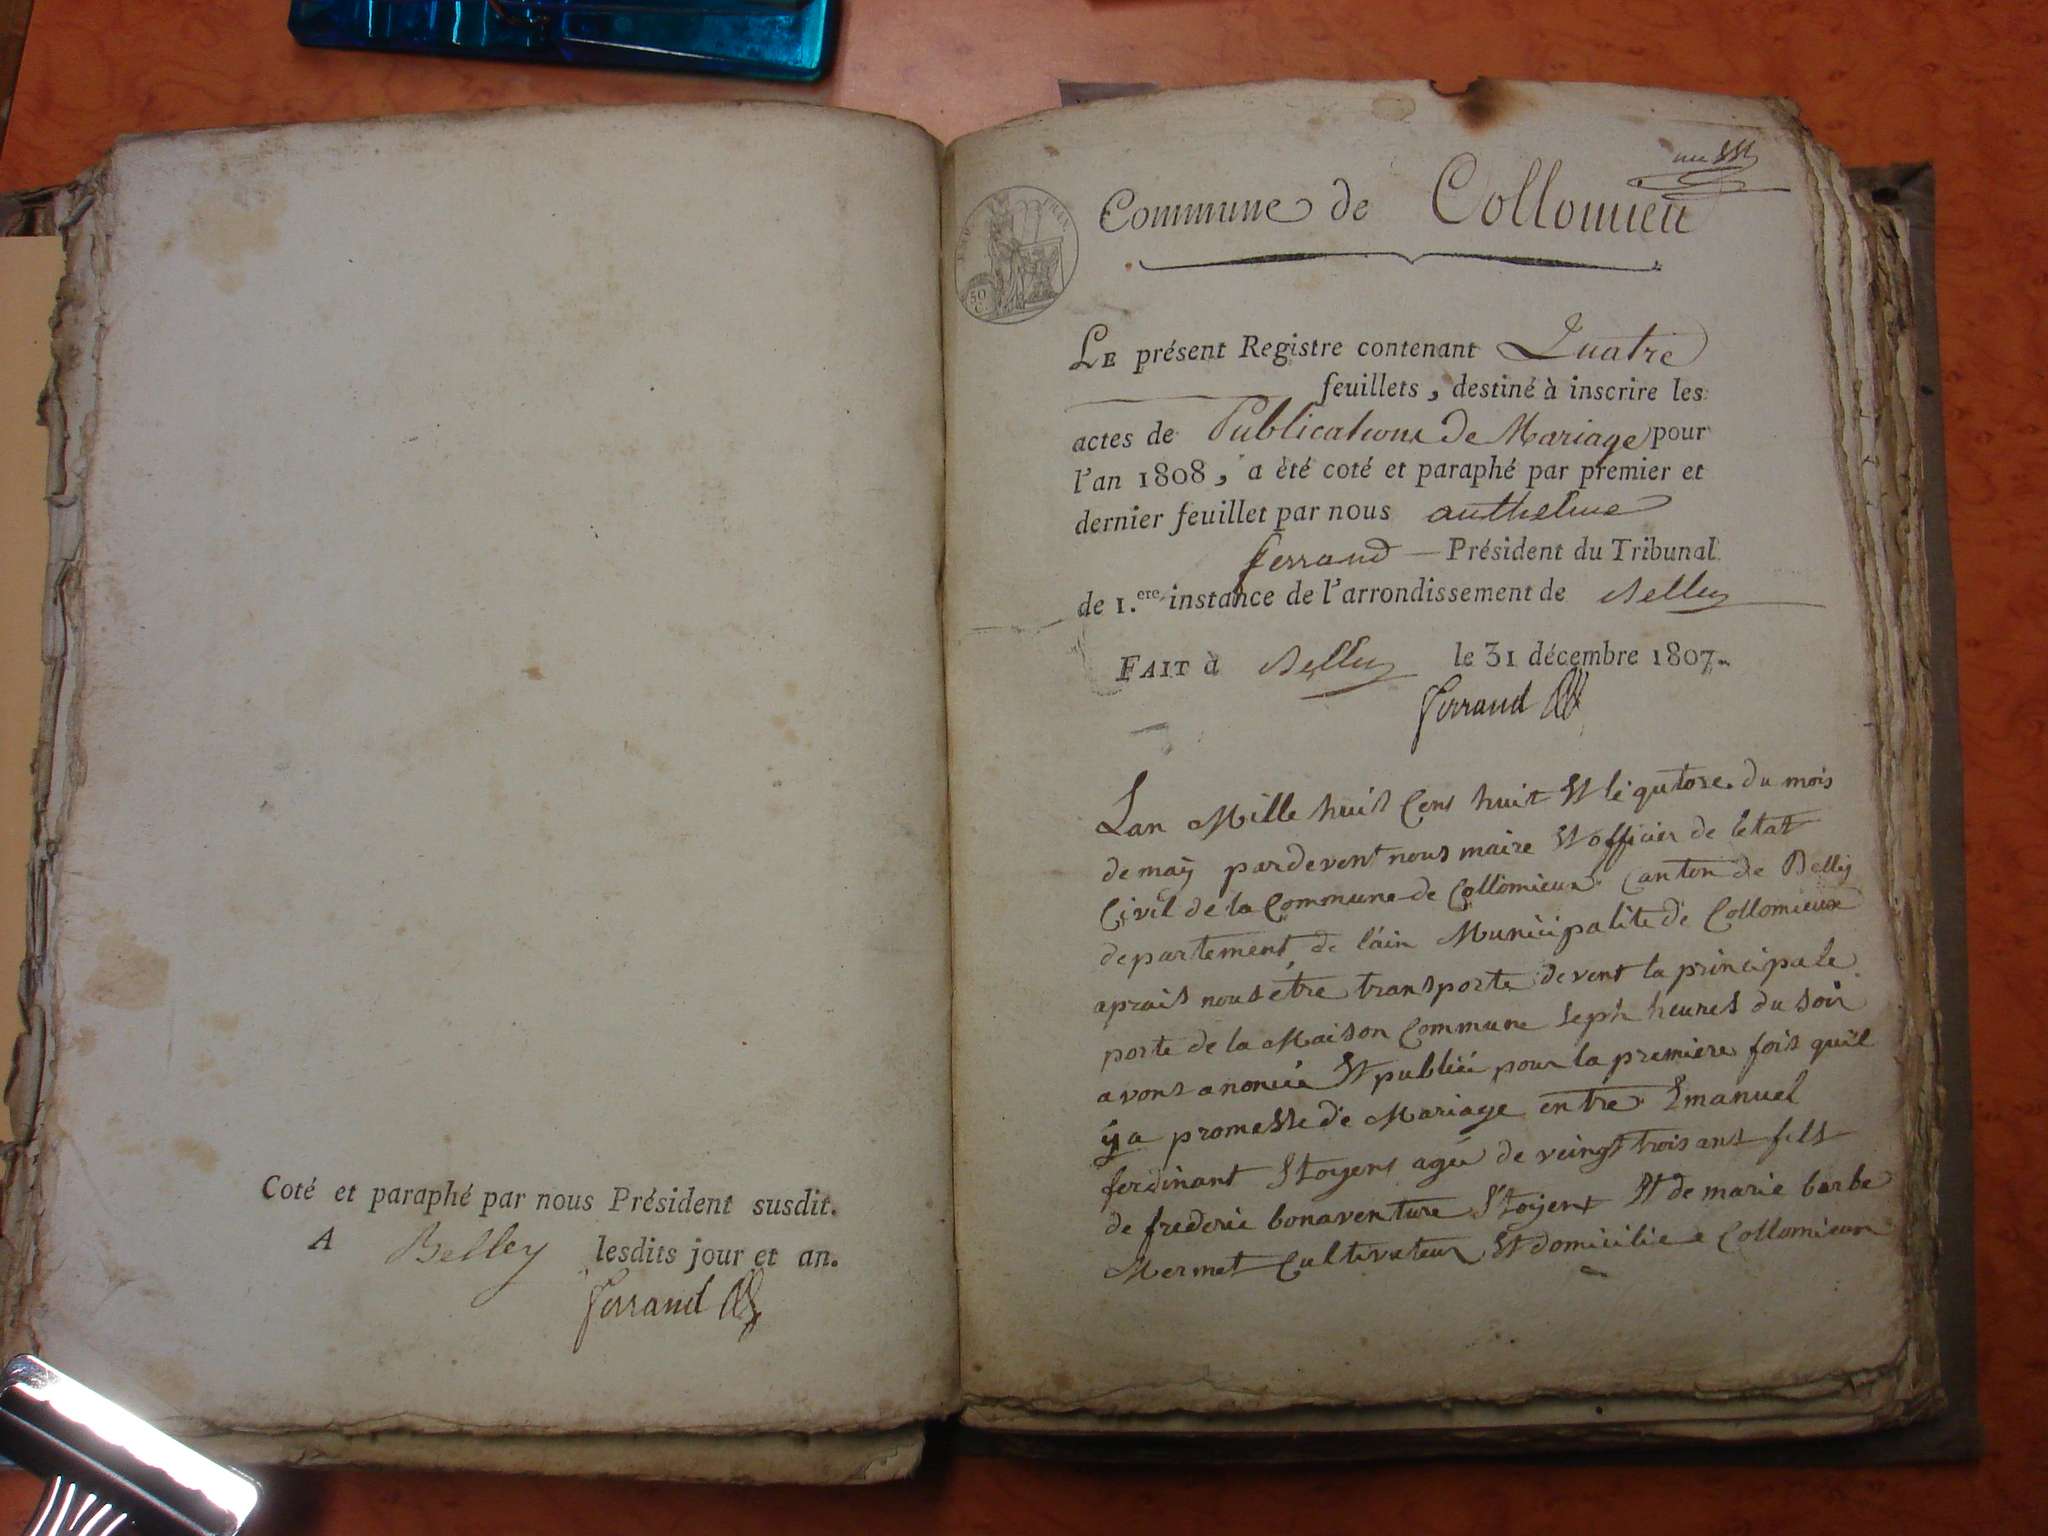 Coté et paraphé par nous Président susdit.
A Belley lesdits jour et an.
Ferrand
Commune de Collomieu
50
C.
LE présent Registre contenant Quatre
feuillets, destiné à inscrire les
actes de Publications de Mariage pour
l'an 1808, a été coté et paraphé par premier et
dernier feuillet par nous anthelme
ferrand Président du Tribunal
de 1.ere instance de l'arrondissement de Belley
FAIT à Belley le 31 décembre 1807.
Ferrand
Lan Mille huit Cens huit Et le qutorse du mois
de maÿ pardevent nous maire Et officier de letat
Civil de la Commune de Collomieux Canton de Belly
departement de l'ain Municipalite de Collomieux
aprais nous être transporte devent la principale
porte de la Maison Commune Sept heures du soir
avons anoncé Et publié pour la premiere fois quil
ÿ a promesse de Mariage entre Emanuel
ferdinant Stoyent agée de veingt trois ans fils
de frederic bonaventure Stoyent Et de marie barbe
Mermet Cultivateur Et domicilie a Collomieux